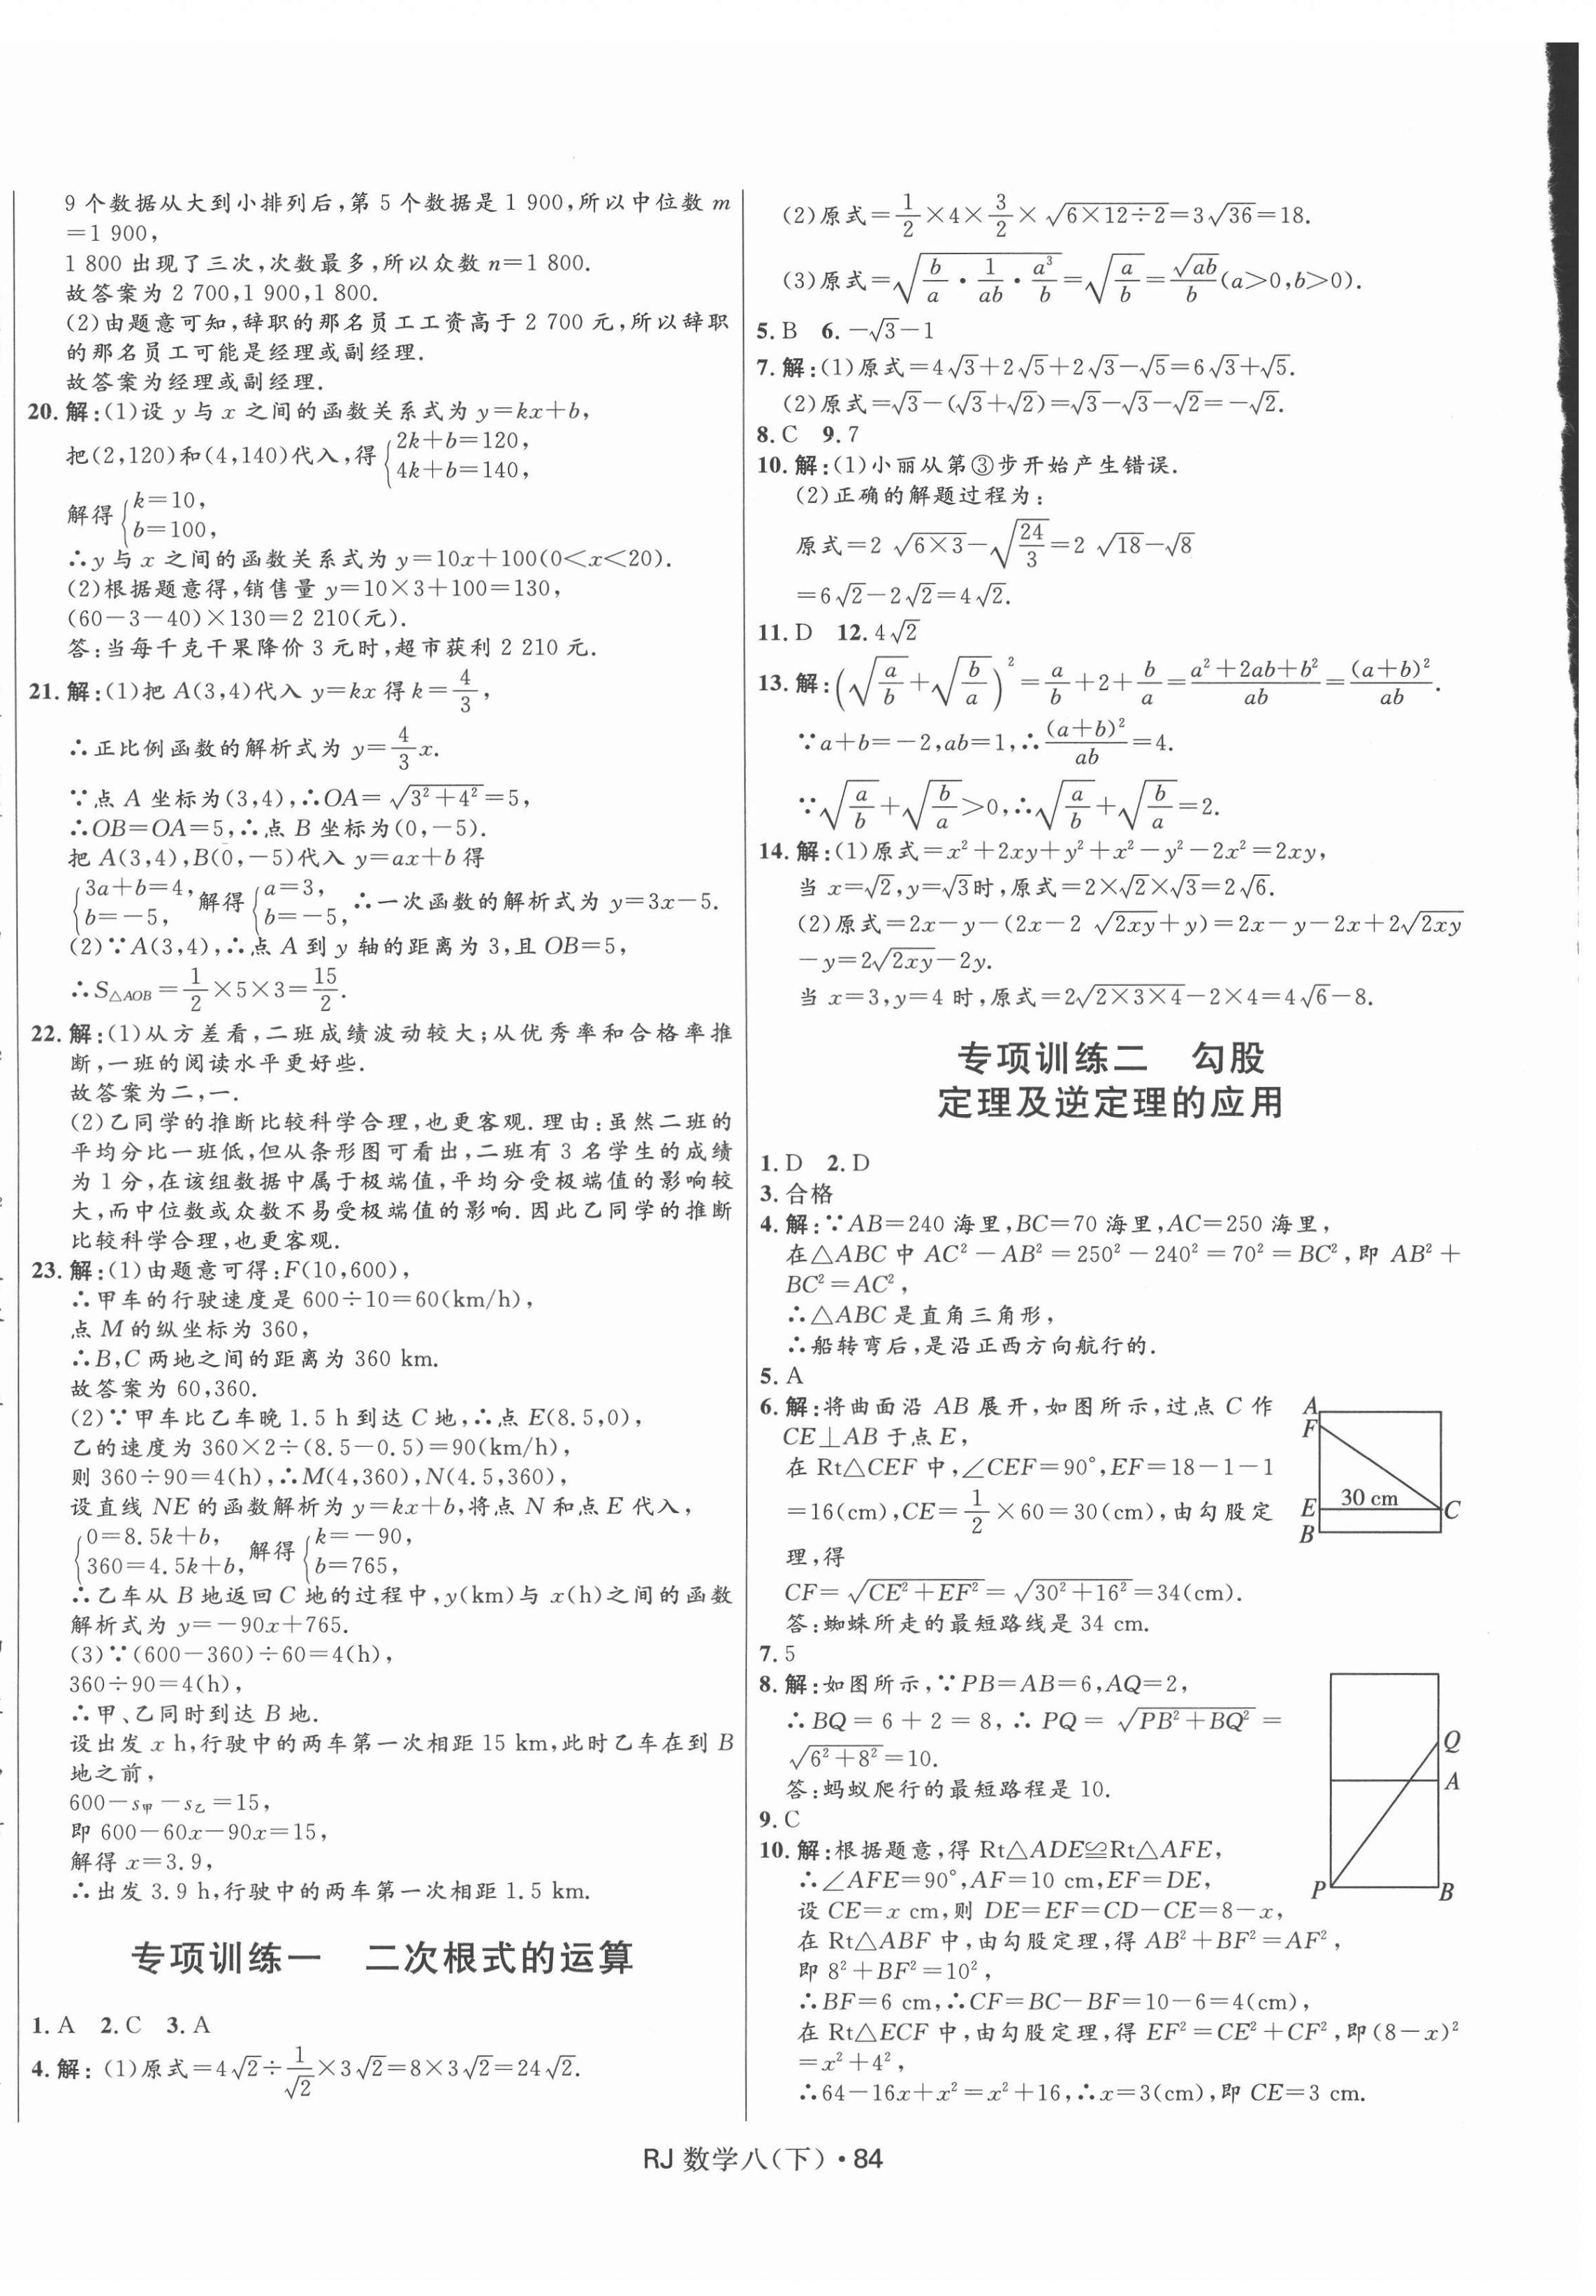 9 个数据从大到小排列后,第 5 个数据是 1 900,所以中位数 m
=1 900,
1 800 出现了三次,次数最多,所以众数 n=1 800.
故答案为 2 700,1 900,1 800.
(2)由题意可知,辞职的那名员工工资高于 2 700 元,所以辞职
的那名员工可能是经理或副经理.
故答案为经理或副经理.
20.解:(1)设 y 与 x 之间的函数关系式为 y=kx+b,
把(2,120)和(4,140)代入,得{2k+b=120, 4k+b=140,
解得{k=10, b=100,
∴y 与 x 之间的函数关系式为 y=10x+100(0<x<20).
(2)根据题意得,销售量 y=10×3+100=130,
(60-3-40)×130=2 210(元).
答:当每千克干果降价 3 元时,超市获利 2 210 元.
21.解:(1)把 A(3,4)代入 y=kx 得 k=4/3,
∴正比例函数的解析式为 y=4/3x.
∵点 A 坐标为(3,4),∴OA=√(3²+4²)=5,
∴OB=OA=5,∴点 B 坐标为(0,-5).
把 A(3,4),B(0,-5)代入 y=ax+b 得
{3a+b=4, b=-5, 解得{a=3, b=-5, ∴一次函数的解析式为 y=3x-5.
(2)∵A(3,4),∴点 A 到 y 轴的距离为 3,且 OB=5,
∴S△AOB=1/2×5×3=15/2.
22.解:(1)从方差看,二班成绩波动较大;从优秀率和合格率推
断,一班的阅读水平更好些.
故答案为二,一.
(2)乙同学的推断比较科学合理,也更客观.理由:虽然二班的
平均分比一班低,但从条形图可看出,二班有 3 名学生的成绩
为 1 分,在该组数据中属于极端值,平均分受极端值的影响较
大,而中位数或众数不易受极端值的影响.因此乙同学的推断
比较科学合理,也更客观.
23.解:(1)由题意可得:F(10,600),
∴甲车的行驶速度是 600÷10=60(km/h),
点 M 的纵坐标为 360,
∴B,C 两地之间的距离为 360 km.
故答案为 60,360.
(2)∵甲车比乙车晚 1.5 h 到达 C 地,∴点 E(8.5,0),
乙的速度为 360×2÷(8.5-0.5)=90(km/h),
则 360÷90=4(h),∴M(4,360),N(4.5,360),
设直线 NE 的函数解析为 y=kx+b,将点 N 和点 E 代入,
{0=8.5k+b, 360=4.5k+b, 解得{k=-90, b=765,
∴乙车从 B 地返回 C 地的过程中,y(km)与 x(h)之间的函数
解析式为 y=-90x+765.
(3)∵(600-360)÷60=4(h),
360÷90=4(h),
∴甲、乙同时到达 B 地.
设出发 x h,行驶中的两车第一次相距 15 km,此时乙车在到 B
地之前,
600-s甲-s乙=15,
即 600-60x-90x=15,
解得 x=3.9,
∴出发 3.9 h,行驶中的两车第一次相距 1.5 km.
专项训练一 二次根式的运算
1.A 2.C 3.A
4.解:(1)原式=4√2÷1/√2×3√2=8×3√2=24√2.
(2)原式=1/2×4×3/2×√(6×12÷2)=3√36=18.
(3)原式=√(b/a·1/ab·a³/b)=√(a/b)=√ab/b(a>0,b>0).
5.B 6.-√3-1
7.解:(1)原式=4√3+2√5+2√3-√5=6√3+√5.
(2)原式=√3-(√3+√2)=√3-√3-√2=-√2.
8.C 9.7
10.解:(1)小丽从第③步开始产生错误.
(2)正确的解题过程为:
原式=2√(6×3)-√(24/3)=2√18-√8
=6√2-2√2=4√2.
11.D 12.4√2
13.解:(√(a/b)+√(b/a))²=a/b+2+b/a=(a²+2ab+b²)/ab=(a+b)²/ab.
∵a+b=-2,ab=1,∴(a+b)²/ab=4.
∵√(a/b)+√(b/a)>0,∴√(a/b)+√(b/a)=2.
14.解:(1)原式=x²+2xy+y²+x²-y²-2x²=2xy,
当 x=√2,y=√3时,原式=2×√2×√3=2√6.
(2)原式=2x-y-(2x-2√(2xy)+y)=2x-y-2x+2√(2xy)
-y=2√(2xy)-2y.
当 x=3,y=4 时,原式=2√(2×3×4)-2×4=4√6-8.
专项训练二 勾股
定理及逆定理的应用
1.D 2.D
3.合格
4.解:∵AB=240 海里,BC=70 海里,AC=250 海里,
在△ABC 中 AC²-AB²=250²-240²=70²=BC²,即 AB²+
BC²=AC²,
∴△ABC 是直角三角形,
∴船转弯后,是沿正西方向航行的.
5.A
6.解:将曲面沿 AB 展开,如图所示,过点 C 作
CE⊥AB 于点 E,
在 Rt△CEF 中,∠CEF=90°,EF=18-1-1
=16(cm),CE=1/2×60=30(cm),由勾股定
理,得
CF=√(CE²+EF²)=√(30²+16²)=34(cm).
答:蜘蛛所走的最短路线是 34 cm.
A
F
30 cm
E
C
B
7.5
8.解:如图所示,∵PB=AB=6,AQ=2,
∴BQ=6+2=8,∴PQ=√(PB²+BQ²)=
√(6²+8²)=10.
答:蚂蚁爬行的最短路程是 10.
Q
A
P
B
9.C
10.解:根据题意,得 Rt△ADE≌Rt△AFE,
∴∠AFE=90°,AF=10 cm,EF=DE,
设 CE=x cm,则 DE=EF=CD-CE=8-x,
在 Rt△ABF 中,由勾股定理,得 AB²+BF²=AF²,
即 8²+BF²=10²,
∴BF=6 cm,∴CF=BC-BF=10-6=4(cm),
在 Rt△ECF 中,由勾股定理,得 EF²=CE²+CF²,即(8-x)²
=x²+4²,
∴64-16x+x²=x²+16,∴x=3(cm),即 CE=3 cm.
RJ 数学八(下)·84